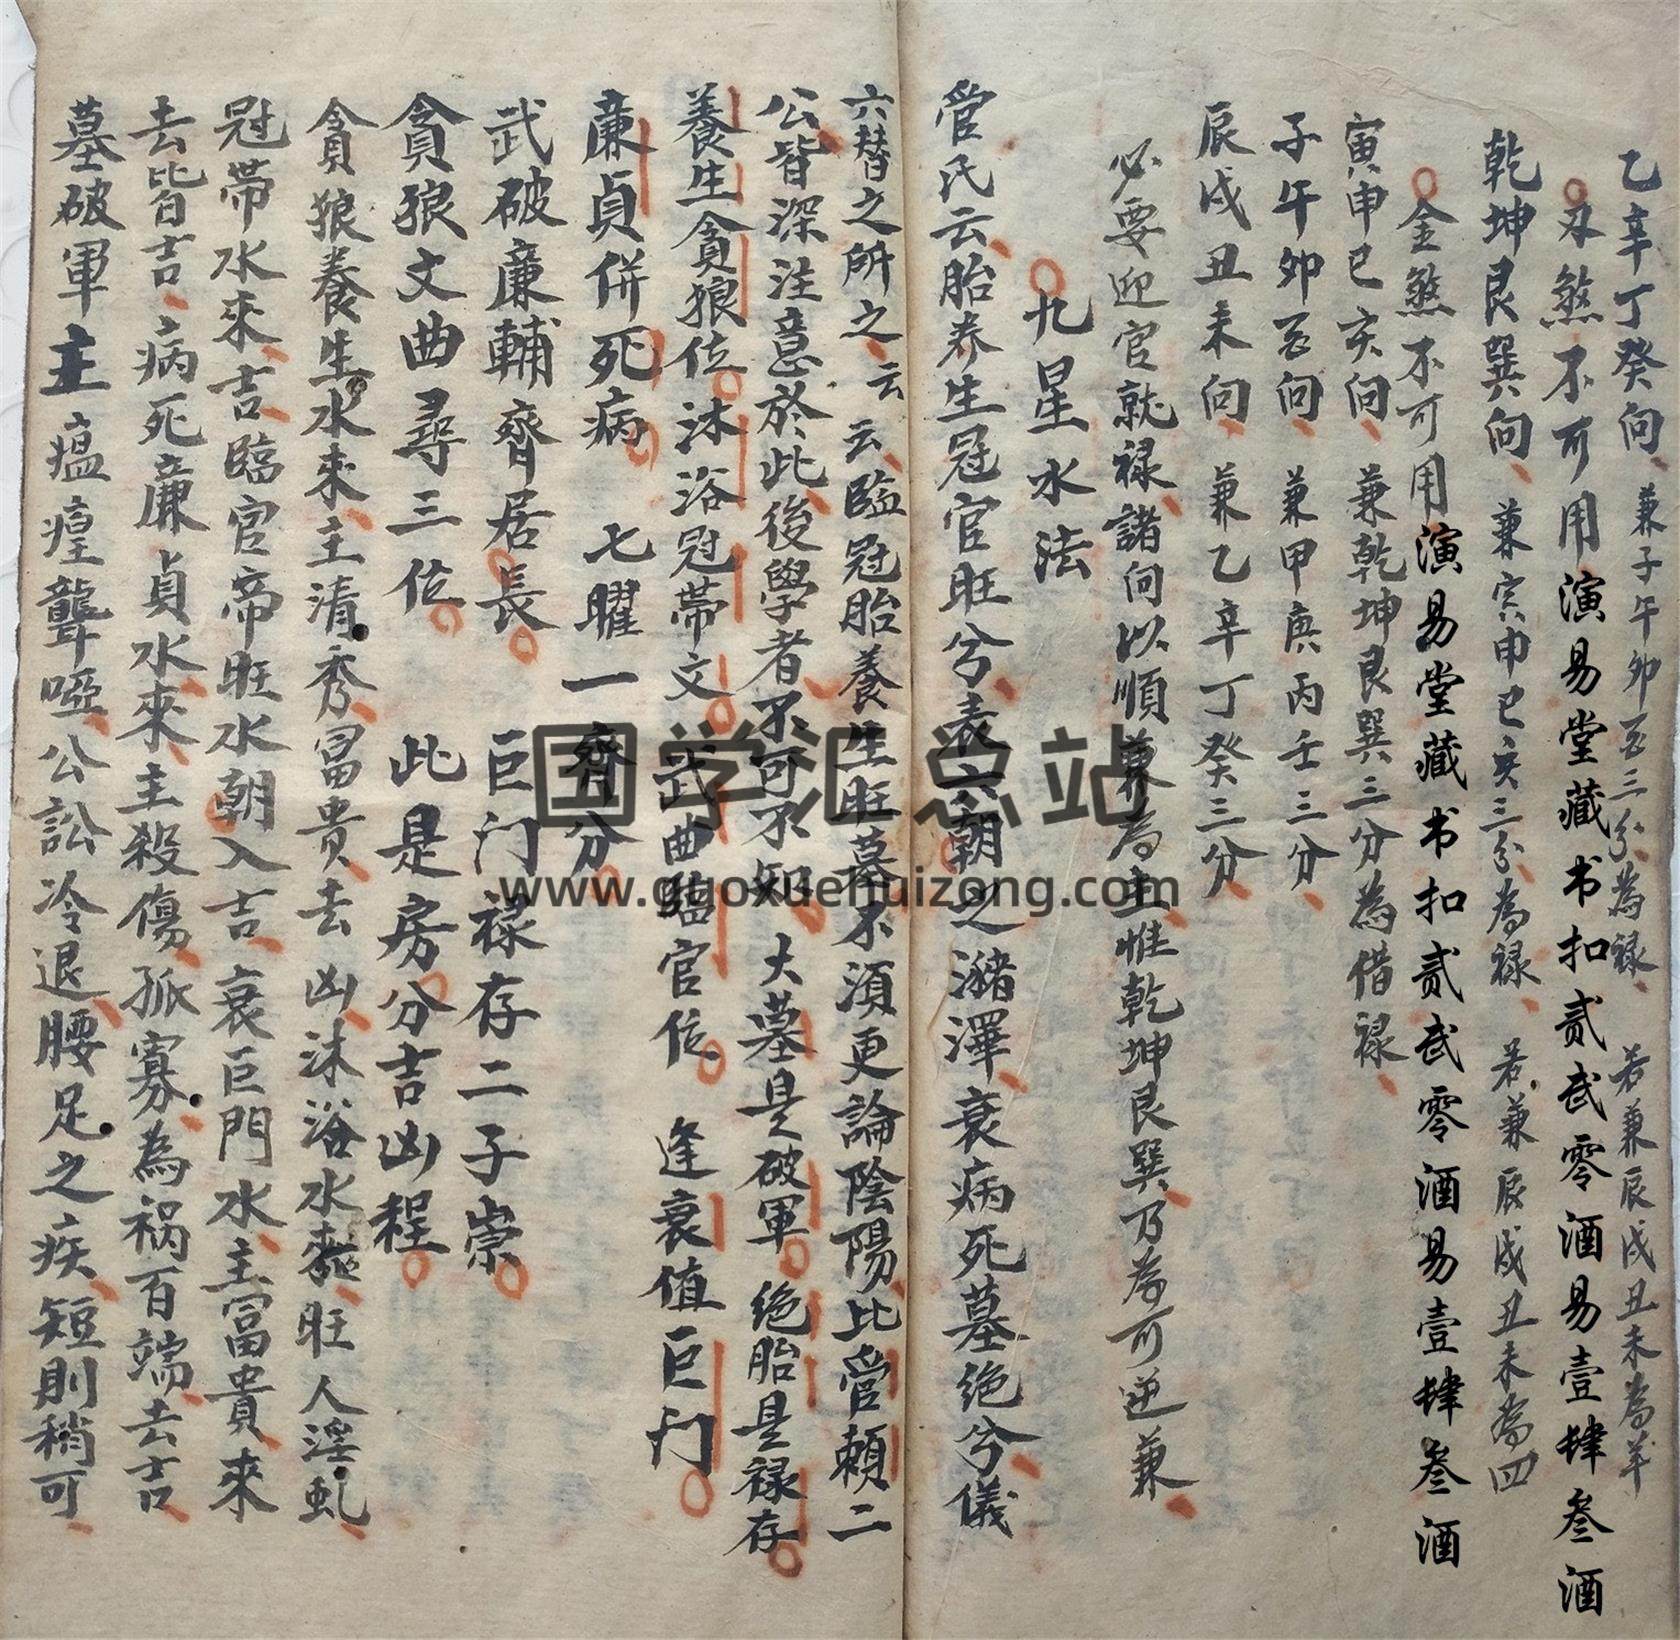 乙辛丁癸向兼子午卯酉三分為禄若兼辰戌丑未為羊
刃煞不可用演易堂藏书扣贰贰零酒易壹肆叁酒
乾坤艮巽向兼寅申巳亥三分為禄若兼辰戌丑未為四
金煞不可用演易堂藏书扣贰贰零酒易壹肆叁酒
寅申巳亥向兼乾坤艮巽三分為借禄
子午卯酉向兼甲庚丙壬三分
辰戌丑未向兼乙辛丁癸三分
必要迎官就禄諸向以順兼為主惟乾坤艮巽乃為可逆兼
九星水法
管氏云胎养生冠官旺兮表六朝之瀦澤衰病死墓绝兮儀
六替之所之云云臨冠胎養生旺墓不須更論陰陽比管賴二
公皆深注意於此後學者不可不知大墓是破軍绝胎是禄存
養生貪狼位沐浴冠帶文武曲臨官位逢衰值巨门
廉貞併死病七曜一齊分
武破廉輔齊居長巨门禄存二子崇
貪狼文曲尋三位此是房分吉凶程
貪狼養生水来主清秀富貴去凶沐浴水来旺人淫乱
冠帶水來吉臨官帝旺水朝入吉衰巨門水主富貴來
去皆吉病死廉貞水來主殺傷孤寡為祸百端去吉
墓破軍主瘟㾮聾啞公訟冷退腰足之疾短則稍可
国学汇总站
www.guoxuehuizong.com